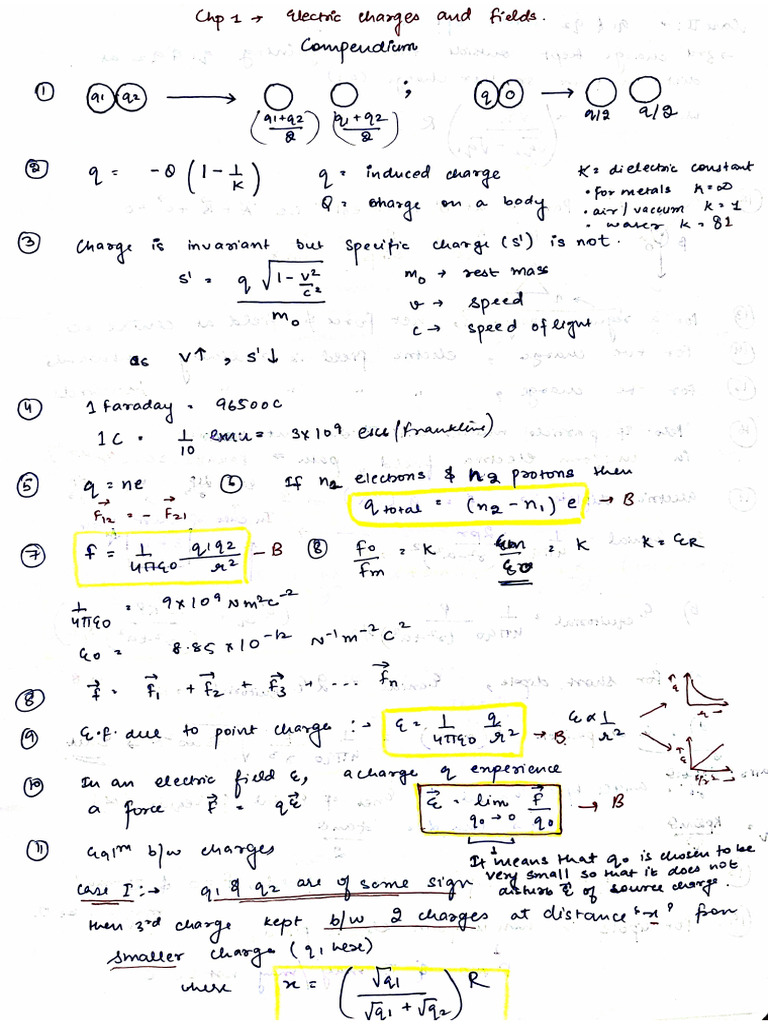 Chp 1 → Electric charges and fields.
Compendium
① q1 q2 → (q1+q2/2) (q1+q2/2) ; q 0 → q/2 q/2
② q = -Q (1 - 1/K) q = induced charge K = dielectric constant
Q = charge on a body • for metals K=∞
• air/vaccum K=1
• water K = 81
③ Charge is invariant but specific charge (s') is not.
s' = q √(1 - v²/c²) / m₀ m₀ → rest mass
v → speed
c → speed of light
as v↑, s'↓
④ 1 faraday = 96500C
1C = 1/10 emu = 3×10⁹ esu (frankline)
⑤ q = ne ⑥ If n₂ electrons & n₂ protons then
F₁₂ = - F₂₁ q total = (n₂ - n₁) e → B
⑦ f = 1/4πε0 q1q2/r² - B ⑧ fo/fm = K εm/ε0 = K K = εR
1/4πε0 = 9×10⁹ Nm²C⁻²
ε0 = 8.85 ×10⁻¹² N⁻¹m⁻²C²
⑧ f = f₁ + f₂ + f₃ + ... fn
⑨ E.f. due to point charge :→ E = 1/4πε0 q/r² → B. E ∝ 1/r²
⑩ In an electric field E, a charge q experience
a force F = qE E = lim q₀→0 F/q₀ → B
It means that q₀ is chosen to be
very small so that it does not
disturb E of source charge.
⑪ Eqlᵐ b/w charges
Case I :→ q1 & q2 are of same sign
then 3rd charge kept b/w 2 charges at distance "x" from
smaller charge (q1 here)
where x = (√q1 / √q1 + √q2) R